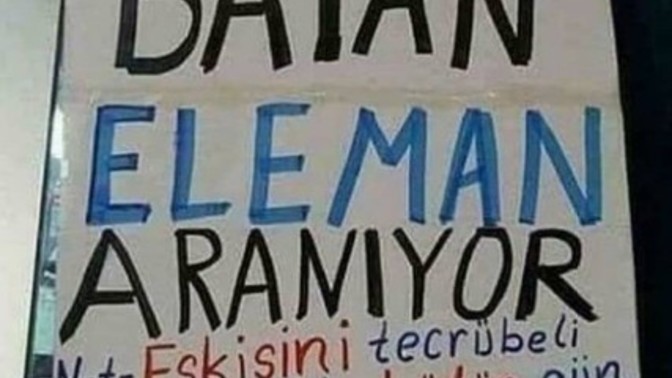 BAYAN
ELEMAN
ARANIYOR
Not: Eskisini tecrübeli
gün